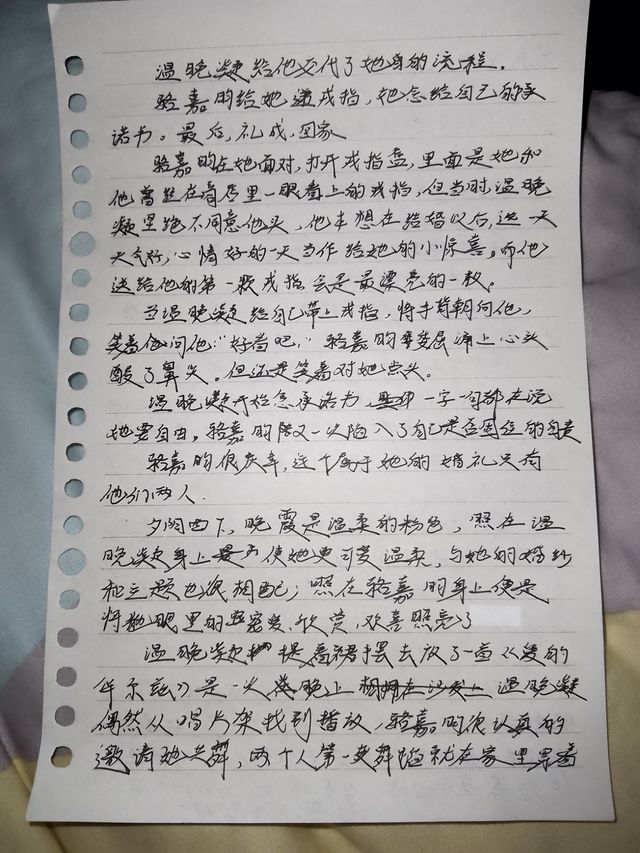 温晚凝给他交代了她自的流程。
骆嘉昀给她递戒指，她念给自己的承
诺书。最后，礼成，回家
骆嘉昀在她面对，打开戒指盒，里面是她和
他曾经在首店里一眼看上的戒指，但当时，温晚
凝坚绝不同意他买，他本想在结婚以后，选一天
天气好，心情好的一天当作给她的小惊喜。而他
送给他的第一款戒指会是最漂亮的一枚。
当温晚凝给自己带上戒指，将手背朝向他，
笑着他问他：“好看吧，”骆嘉昀委屈涌上心头
酸了鼻头。但还是笑着对她点头。
温晚凝开始念承诺书，一字一句都在说
她要自由。骆嘉昀又一次陷入了自己是否困住的自责
骆嘉昀很庆幸，这个属于她的婚礼只有
他们两人.
夕阳西下，晚霞是温柔的粉色，照在温
晚凝身上是使她更可爱温柔，与她的婚纱
和主题也很相配，照在骆嘉昀身上便是
将她眼里的爱、欣赏，欢喜照亮了
温晚凝提着裙摆去放了一首《爱的
华尔兹》是一次晚上 温晚凝
偶然从唱片架找到播放，骆嘉昀很认真的
邀请她共舞，两个人第一支舞蹈就在家里